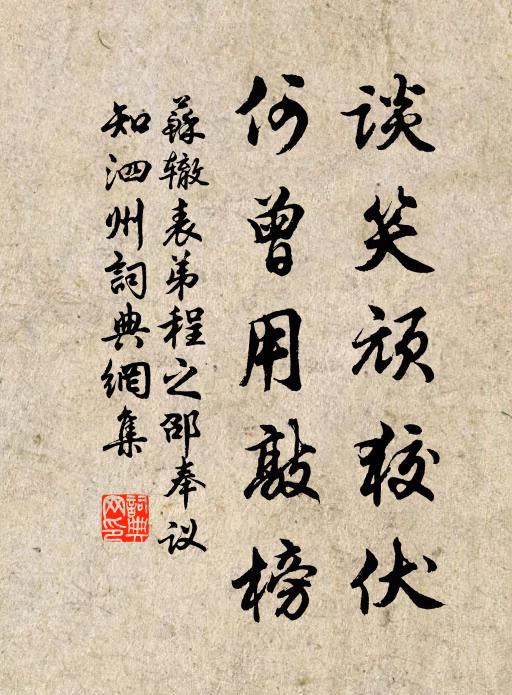 谈笑顽狡伏
何曾用敲榜
蘇辙表弟程之邵奉议
知泗州詞典網集
詞典
网印